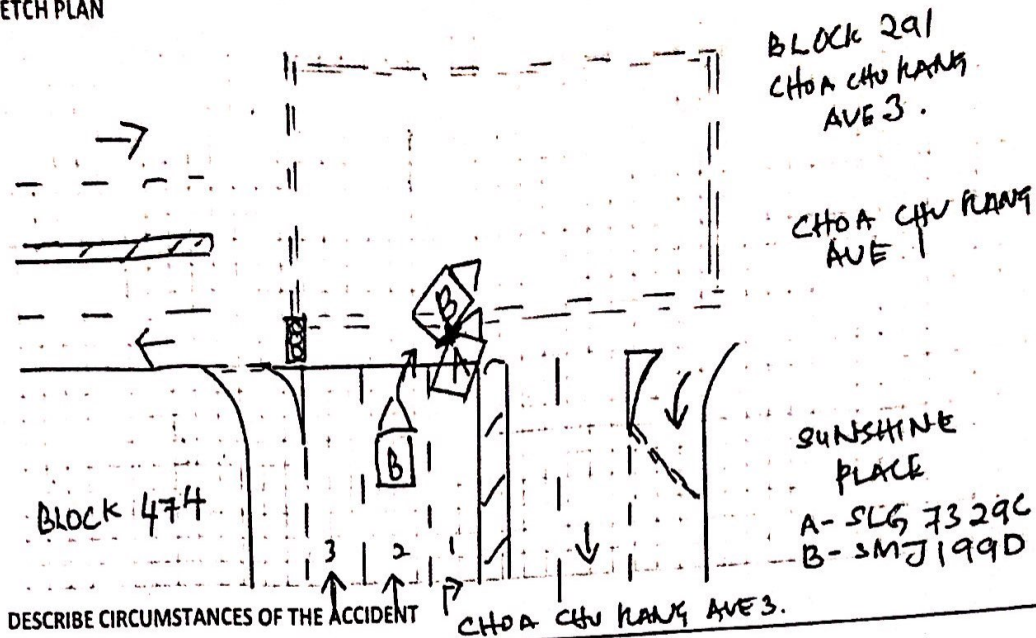 ETCH PLAN
BLOCK 291
CHOA CHU KANG
AVE 3.
CHOA CHU KANG
AVE 1
B
A
B
BLOCK 474
SUNSHINE
PLACE
A- SLG 7329C
B- SMJ199D
3 2 1
DESCRIBE CIRCUMSTANCES OF THE ACCIDENT
CHOA CHU KANG AVE 3.